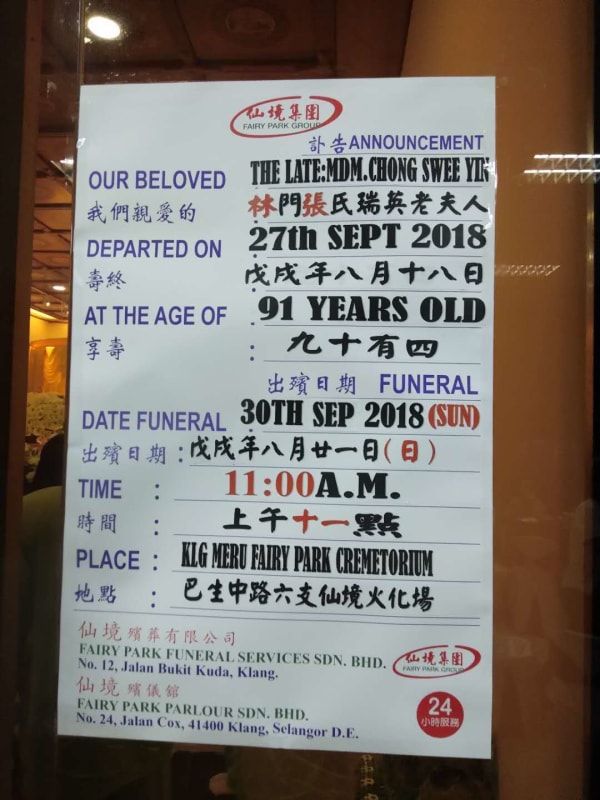 仙境集團
FAIRY PARK GROUP
訃告ANNOUNCEMENT
OUR BELOVED : THE LATE:MDM.CHONG SWEE YIN
我們親愛的 : 林門張氏瑞英老夫人
DEPARTED ON : 27th SEPT 2018
壽終 : 戊戌年八月十八日
AT THE AGE OF : 91 YEARS OLD
享壽 : 九十有四
出殯日期 FUNERAL
DATE FUNERAL : 30TH SEP 2018(SUN)
出殯日期 : 戊戌年八月廿一日(日)
TIME : 11:00A.M.
時間 : 上午十一點
PLACE : KLG MERU FAIRY PARK CREMETORIUM
地點 : 巴生中路六支仙境火化場
仙境殯葬有限公司
FAIRY PARK FUNERAL SERVICES SDN. BHD.
No. 12, Jalan Bukit Kuda, Klang.
仙境集團
FAIRY PARK GROUP
仙境殯儀館
FAIRY PARK PARLOUR SDN. BHD.
No. 24, Jalan Cox, 41400 Klang, Selangor D.E.
24
小時服務